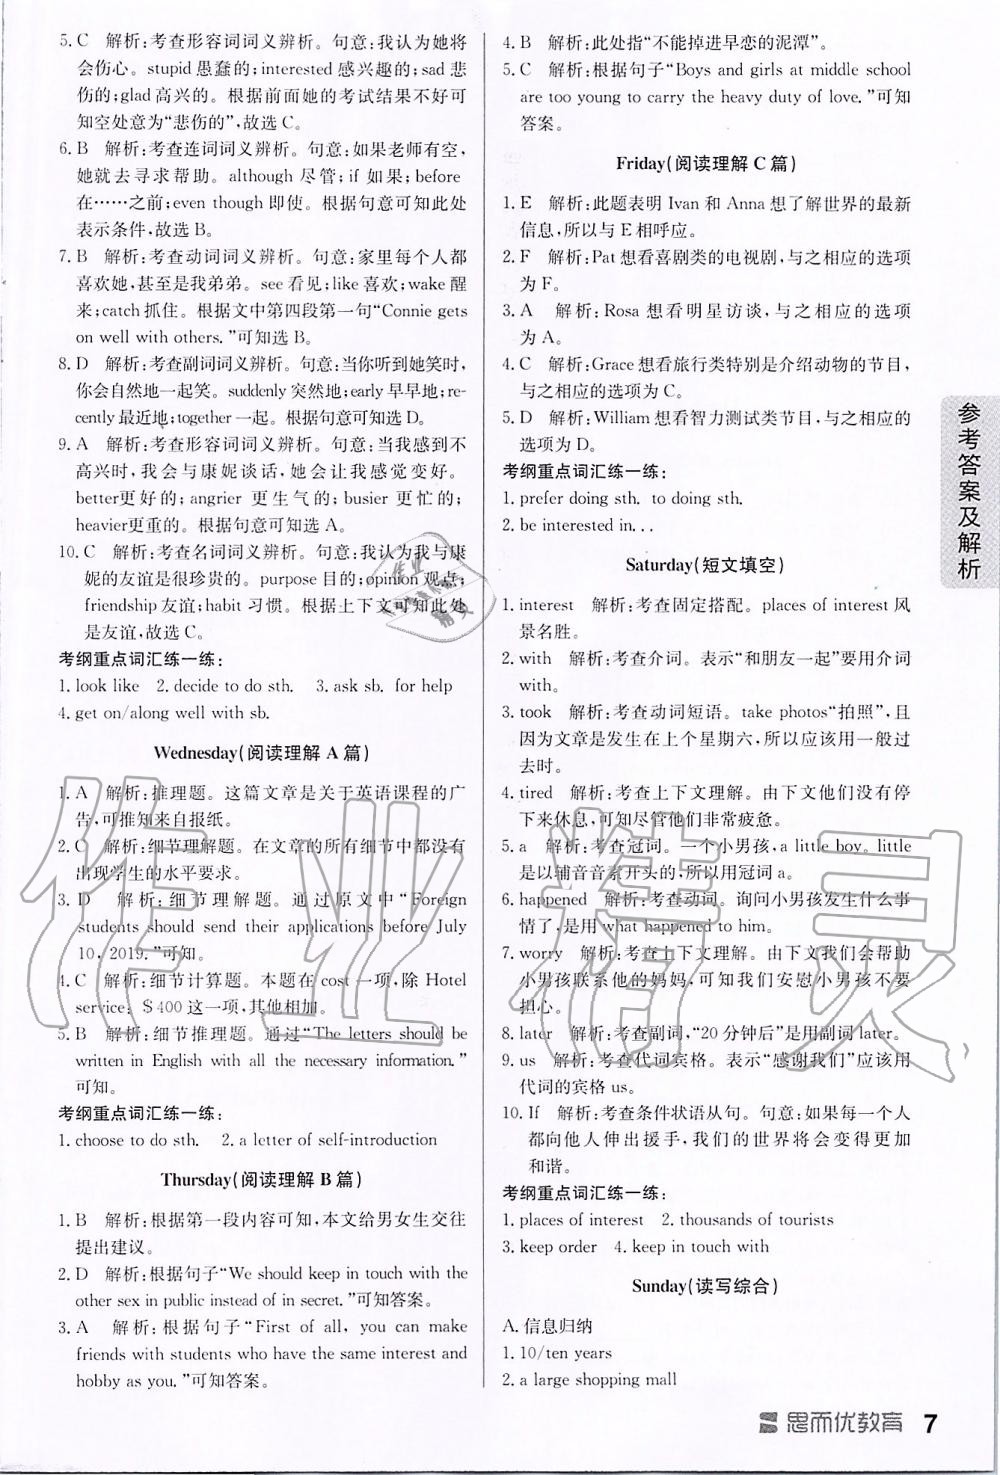 5. C　解析:考查形容词词义辨析。句意:我认为她将
会伤心。stupid 愚蠢的;interested 感兴趣的;sad 悲
伤的;glad 高兴的。根据前面她的考试结果不好可
知空处意为“悲伤的”,故选 C。
6. B　解析:考查连词词义辨析。句意:如果老师有空,
她就去寻求帮助。although 尽管;if 如果;before
在……之前;even though 即使。根据句意可知此处
表示条件,故选 B。
7. B　解析:考查动词词义辨析。句意:家里每个人都
喜欢她,甚至是我弟弟。see 看见;like 喜欢;wake 醒
来;catch 抓住。根据文中第四段第一句“Connie gets
on well with others. ”可知选 B。
8. D　解析:考查副词词义辨析。句意:当你听到她笑时,
你会自然地一起笑。suddenly 突然地;early 早早地;re-
cently 最近地;together 一起。根据句意可知选 D。
9. A　解析:考查形容词词义辨析。句意:当我感到不
高兴时,我会与康妮谈话,她会让我感觉变好。
better更好的;angrier 更生气的;busier 更忙的;
heavier更重的。根据句意可知选 A。
10. C　解析:考查名词词义辨析。句意:我认为我与康
妮的友谊是很珍贵的。purpose 目的;opinion 观点;
friendship 友谊;habit 习惯。根据上下文可知此处
是友谊,故选 C。
考纲重点词汇练一练:
1. look like　2. decide to do sth.　3. ask sb. for help
4. get on/along well with sb.
Wednesday(阅读理解 A 篇)
1. A　解析:推理题。这篇文章是关于英语课程的广
告,可推知来自报纸。
2. C　解析:细节理解题。在文章的所有细节中都没有
出现学生的水平要求。
3. D　解析:细节理解题。通过原文中“Foreign
students should send their applications before July
10, 2019. ”可知。
4. C　解析:细节计算题。本题在 cost 一项,除 Hotel
service: $400 这一项,其他相加。
5. B　解析:细节推理题。通过“The letters should be
written in English with all the necessary information. ”
可知。
考纲重点词汇练一练:
1. choose to do sth.　2. a letter of self-introduction
Thursday(阅读理解 B 篇)
1. B　解析:根据第一段内容可知,本文给男女生交往
提出建议。
2. D　解析:根据句子“We should keep in touch with the
other sex in public instead of in secret. ”可知答案。
3. A　解析:根据句子“First of all, you can make
friends with students who have the same interest and
hobby as you. ”可知答案。
4. B　解析:此处指“不能掉进早恋的泥潭”。
5. C　解析:根据句子“Boys and girls at middle school
are too young to carry the heavy duty of love. ”可知
答案。
Friday(阅读理解 C 篇)
1. E　解析:此题表明 Ivan 和 Anna 想了解世界的最新
信息,所以与 E 相呼应。
2. F　解析:Pat 想看喜剧类的电视剧,与之相应的选项
为 F。
3. A　解析:Rosa 想看明星访谈,与之相应的选项
为 A。
4. C　解析:Grace 想看旅行类特别是介绍动物的节目,
与之相应的选项为 C。
5. D　解析:William 想看智力测试类节目,与之相应的
选项为 D。
考纲重点词汇练一练:
1. prefer doing sth. to doing sth.
2. be interested in. . .
Saturday(短文填空)
1. interest　解析:考查固定搭配。places of interest 风
景名胜。
2. with　解析:考查介词。表示“和朋友一起”要用介词
with。
3. took　解析:考查动词短语。take photos“拍照”,且
因为文章是发生在上个星期六,所以应该用一般过
去时。
4. tired　解析:考查上下文理解。由下文他们没有停
下来休息,可知尽管他们非常疲惫。
5. a　解析:考查冠词。一个小男孩,a little boy。little
是以辅音音素开头的,所以用冠词 a。
6. happened　解析:考查动词。询问小男孩发生什么事
情了,是用 what happened to him。
7. worry　解析:考查上下文理解。由下文我们会帮助
小男孩联系他的妈妈,可知我们安慰小男孩不要
担心。
8. later　解析:考查副词,“20 分钟后”是用副词 later。
9. us　解析:考查代词宾格。表示“感谢我们”应该用
代词的宾格 us。
10. If　解析:考查条件状语从句。句意:如果每一个人
都向他人伸出援手,我们的世界将会变得更加
和谐。
考纲重点词汇练一练:
1. places of interest　2. thousands of tourists
3. keep order　4. keep in touch with
Sunday(读写综合)
A. 信息归纳
1. 10/ten years
2. a large shopping mall
参考答案及解析
思而优教育 7
作业精灵